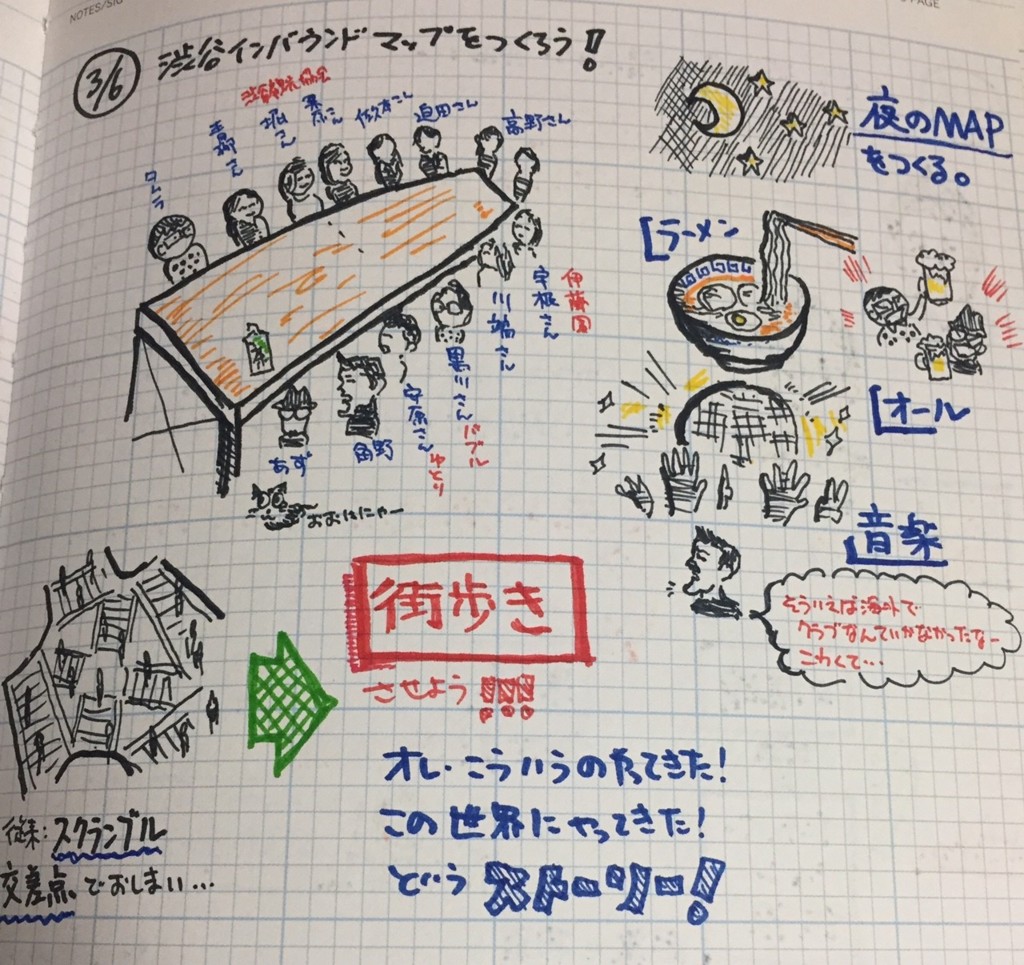 NOTES/SIG
PAGE
3/6
渋谷インバウンドマップをつくろう!
タムラ
堀さん
佐々木さん
迫田さん
高野さん
宇根さん
伊藤園
川端さん
黒川さん
バブル
安原さん
ゆとり
角野
あず
おおににゃー
茶
夜のMAP
をつくる。
ラーメン
オール
音楽
そういえば海外で
クラブなんていかなかったなー
こわくて…
街歩き
させよう!!!
従来:スクランブル
交差点でおしまい…
オレ・こういうのやってきた!
この世界にやってきた!
どうストーリー!